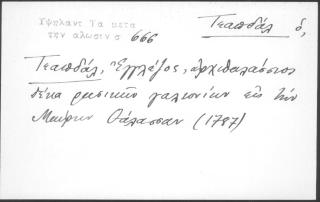 Ὑψηλάντ Τα μετα
την αλωσιν σ 666
Τεαπδάλ ὁ,
Τεαπδάλ, Ἐγγλέζος, ἀρχιθαλάσσιος
δέκα ρωσικῶν γαλιονίων εἰς τὴν
Μαύρην Θάλασσαν (1787)